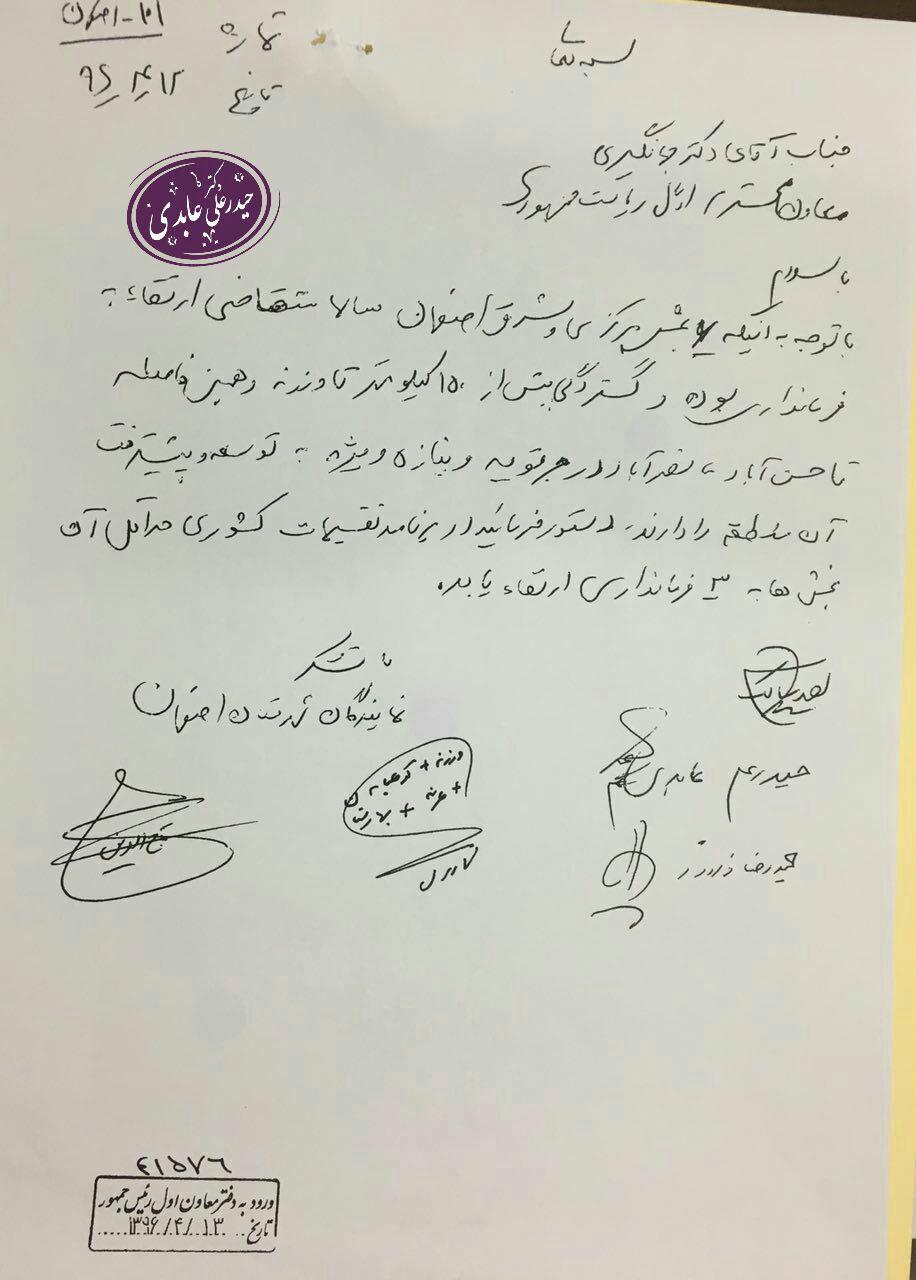 بسمه تعالی
شماره ۱۰۱-اصفهان
تاریخ ۹۶٫۴٫۱۲
دکتر حیدرعلی عابدی
جناب آقای دکتر جهانگیری
معاون محترم اول ریاست جمهوری
با سلام
با توجه به اینکه بخش مرکزی و شرق اصفهان سالها متقاضی ارتقاء به
فرمانداری بوده و گستردگی بیش از ۱۵۰ کیلومتر تا ورزنه و همین فاصله
تا حسن آباد تا نصرآباد در جرقویه و نیاز ویژه به توسعه و پیشرفت
آن منطقه را دارند. دستور فرمائید در برنامه تقسیمات کشوری حداقل آن
بخش ها به ۳ فرمانداری ارتقاء یابد.
با تشکر
نمایندگان شهرستان اصفهان
حیدرعلی عابدی
حمیدرضا فولادگر
ورزنه +
+ هرند +
تاج الدین
۴۱۵۷۶
ورود به دفتر معاون اول رئیس جمهور
تاریخ ۱۳۹۶/۴/۱۳